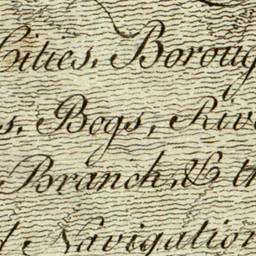 Cities, Boroug
s, Bogs, Riv
Branch, & th
d Navigation